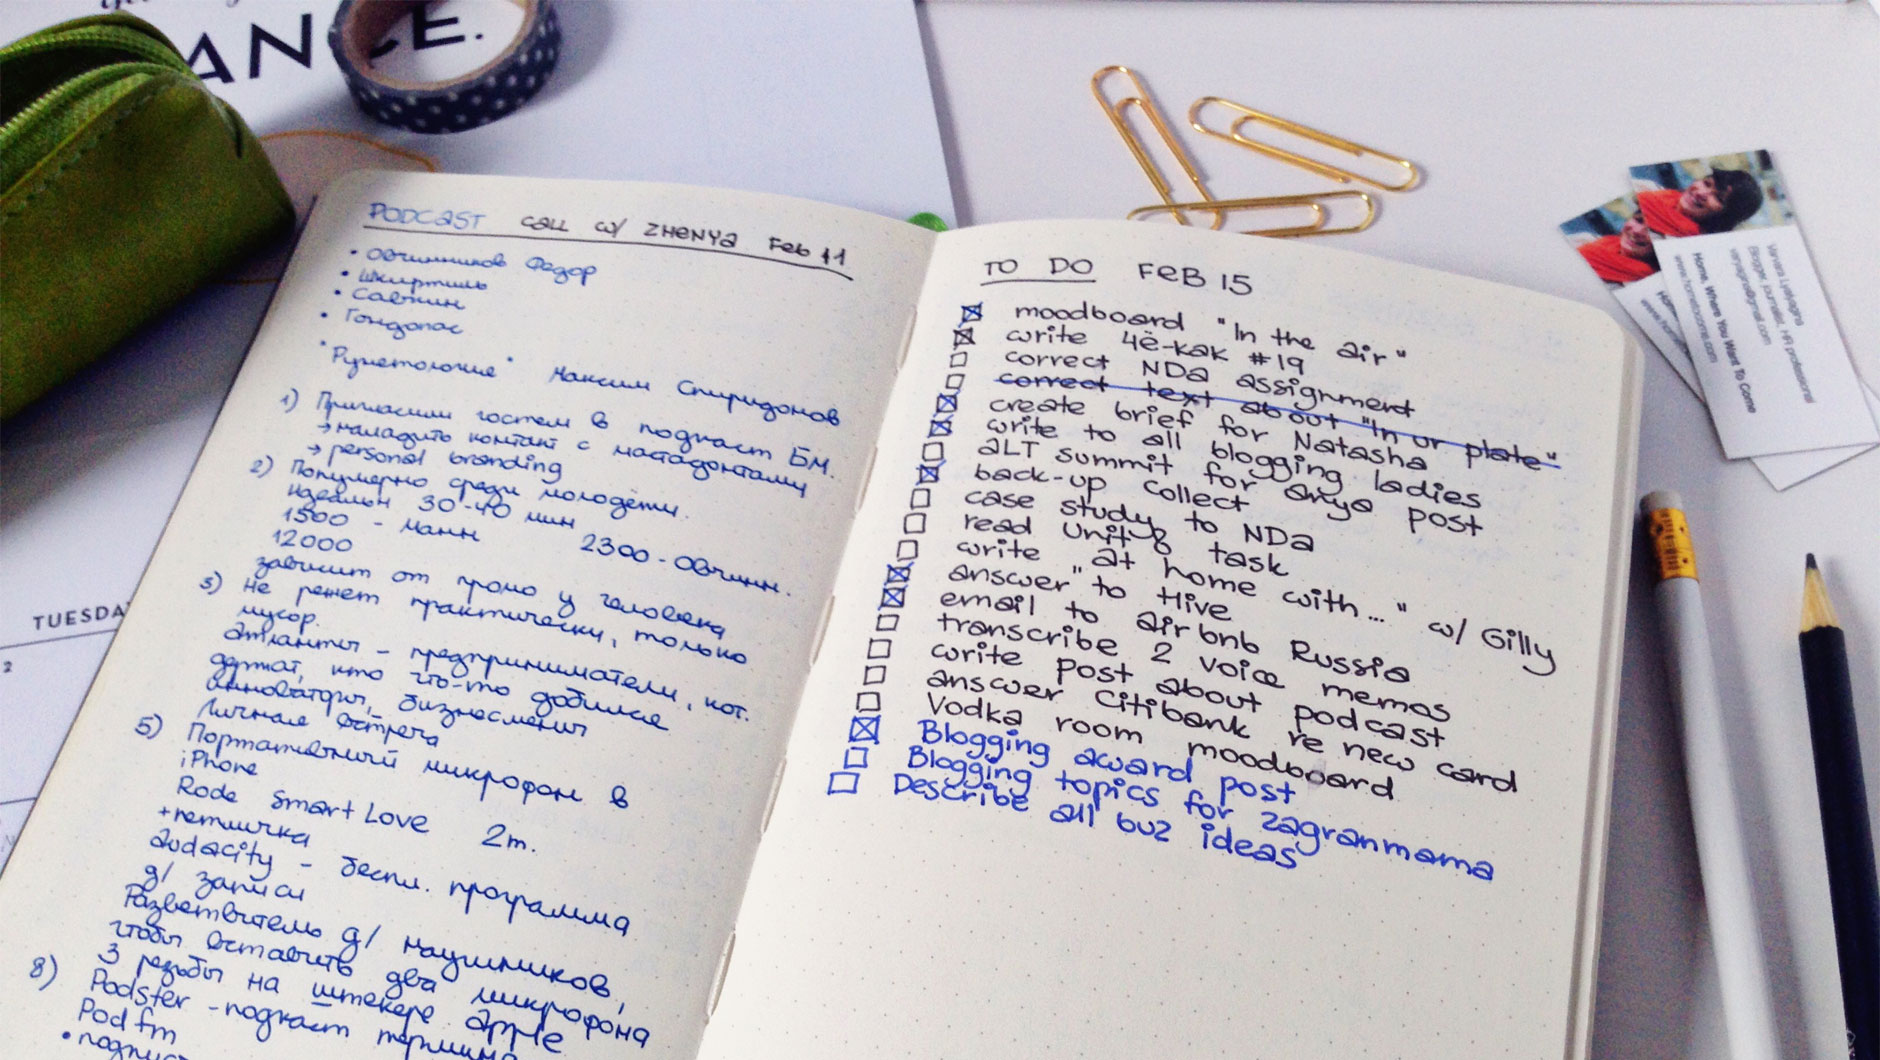 ANCE.
TUESDA
2
PODCAST call w/ ZHENYA Feb 11
• Овчинников Федор
• Шкиртиль
• Савкин
• Гондопас
"Рунетология" Максим Спиридонов
1) Пригласили гостем в подкаст БМ.
→ наладить контакт с мастадонтами
→ personal branding
2) Популярно среди молодёжи.
идеальн 30-40 мин
1500 - манн 2300 - Овчинн.
12000
зависит от промо у человека
3) Не режет практически, только
мусор.
атланты - предприниматели, кот.
держат, кто что-то добился
инноваторы, бизнесмены
Личная встреча
5) Портативный микрофон в
iPhone
Rode Smart Love 2m.
+ петличка
audacity - беспл. программа
д/ записи
Разветвитель д/ наушников,
чтобы вставить два микрофона
3 резьбы на штекере apple
8) Podster - подкаст терминал
Pod fm
TO DO Feb 15
☒ moodboard "In the air"
☒ write чё-как #19
☐ correct NDa assignment
☐ correct text about "In ur plate"
☒ create brief for Natasha
☒ write to all blogging ladies
☐ aLT summit for anya post
☒ back-up collect
☐ case study to NDa
☐ read Unit 8 task
☐ write "at home with..." w/ Gilly
☒ answer" to Hive
☒ email to airbnb Russia
☐ transcribe 2 voice memos
☐ write post about podcast
☐ answer Citibank re new card
☐ Vodka room moodboard
☒ Blogging award post
☐ Blogging topics for zagranmama
☐ Describe all buz ideas
Varvara Lyalyagina
Blogger, journalist, HR professional
varyagina@gmail.com
Home. Where You Want To Come
www.homeiscome.com